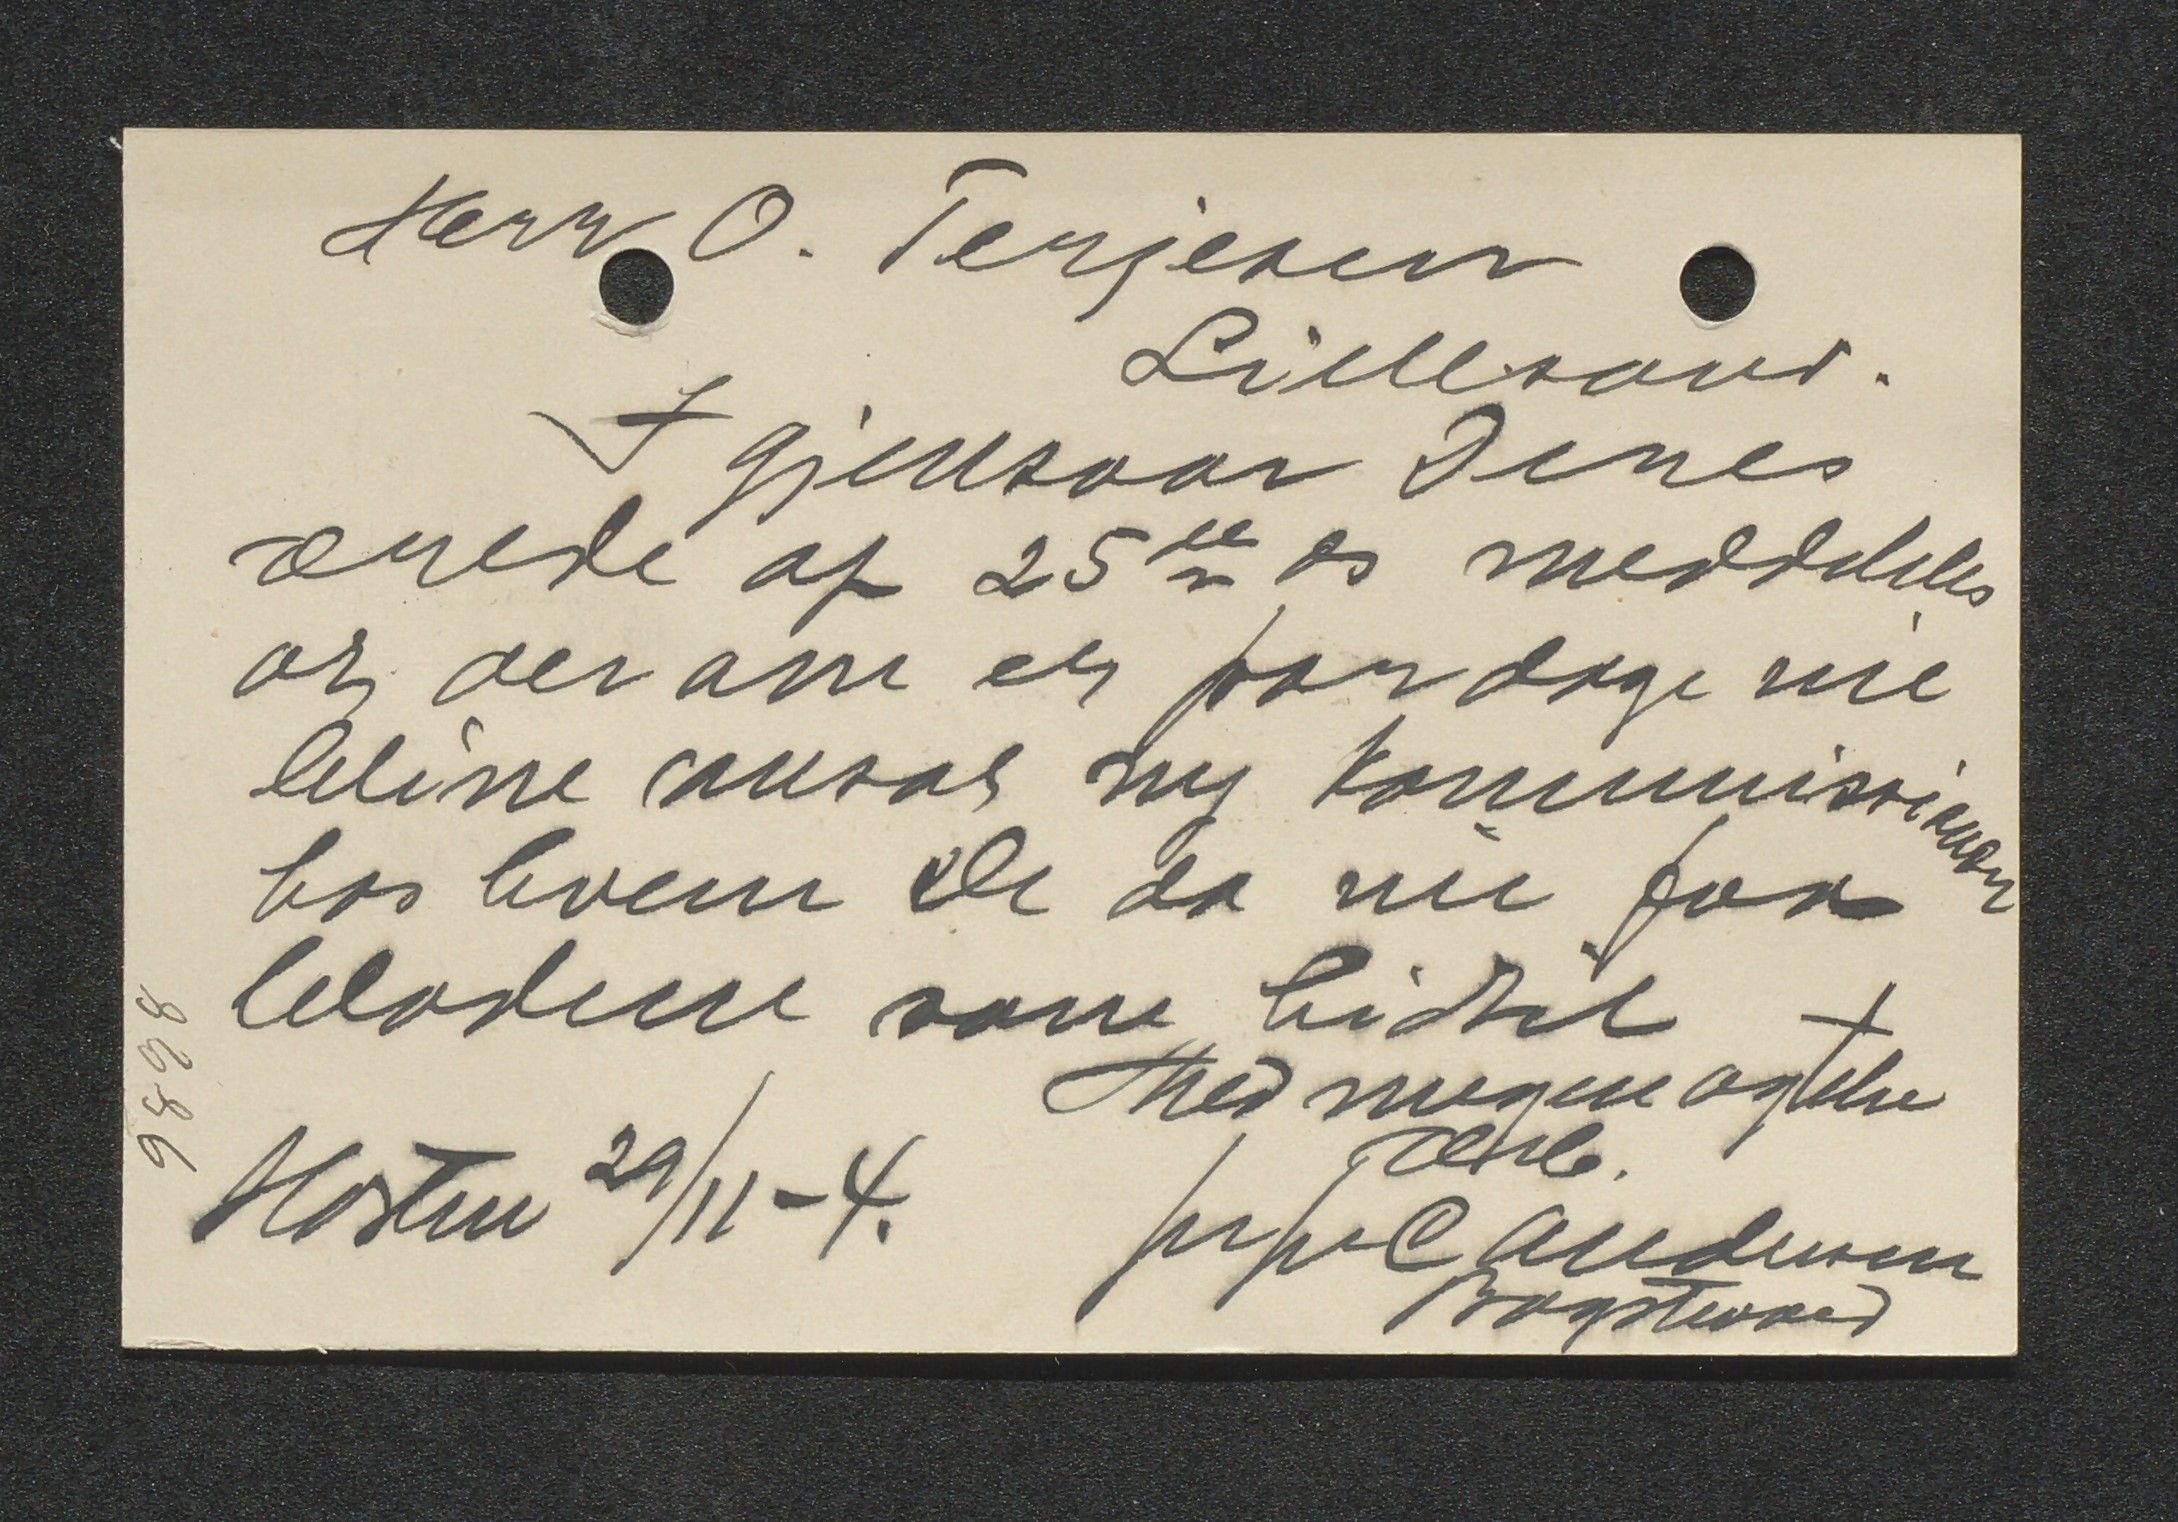 Herr O. Terjesen
Lillesand.
I gjensvar Deres
ærede af 25de ds meddeles
at, der om et par dage vil
blive ansat ny kommissionær
hos hvem De da vil faa
bladene som hidtil
Med megen agtelse
ærb.
pr pr C Andersen
Bogstvaed
Horten 29/11-4.
9898